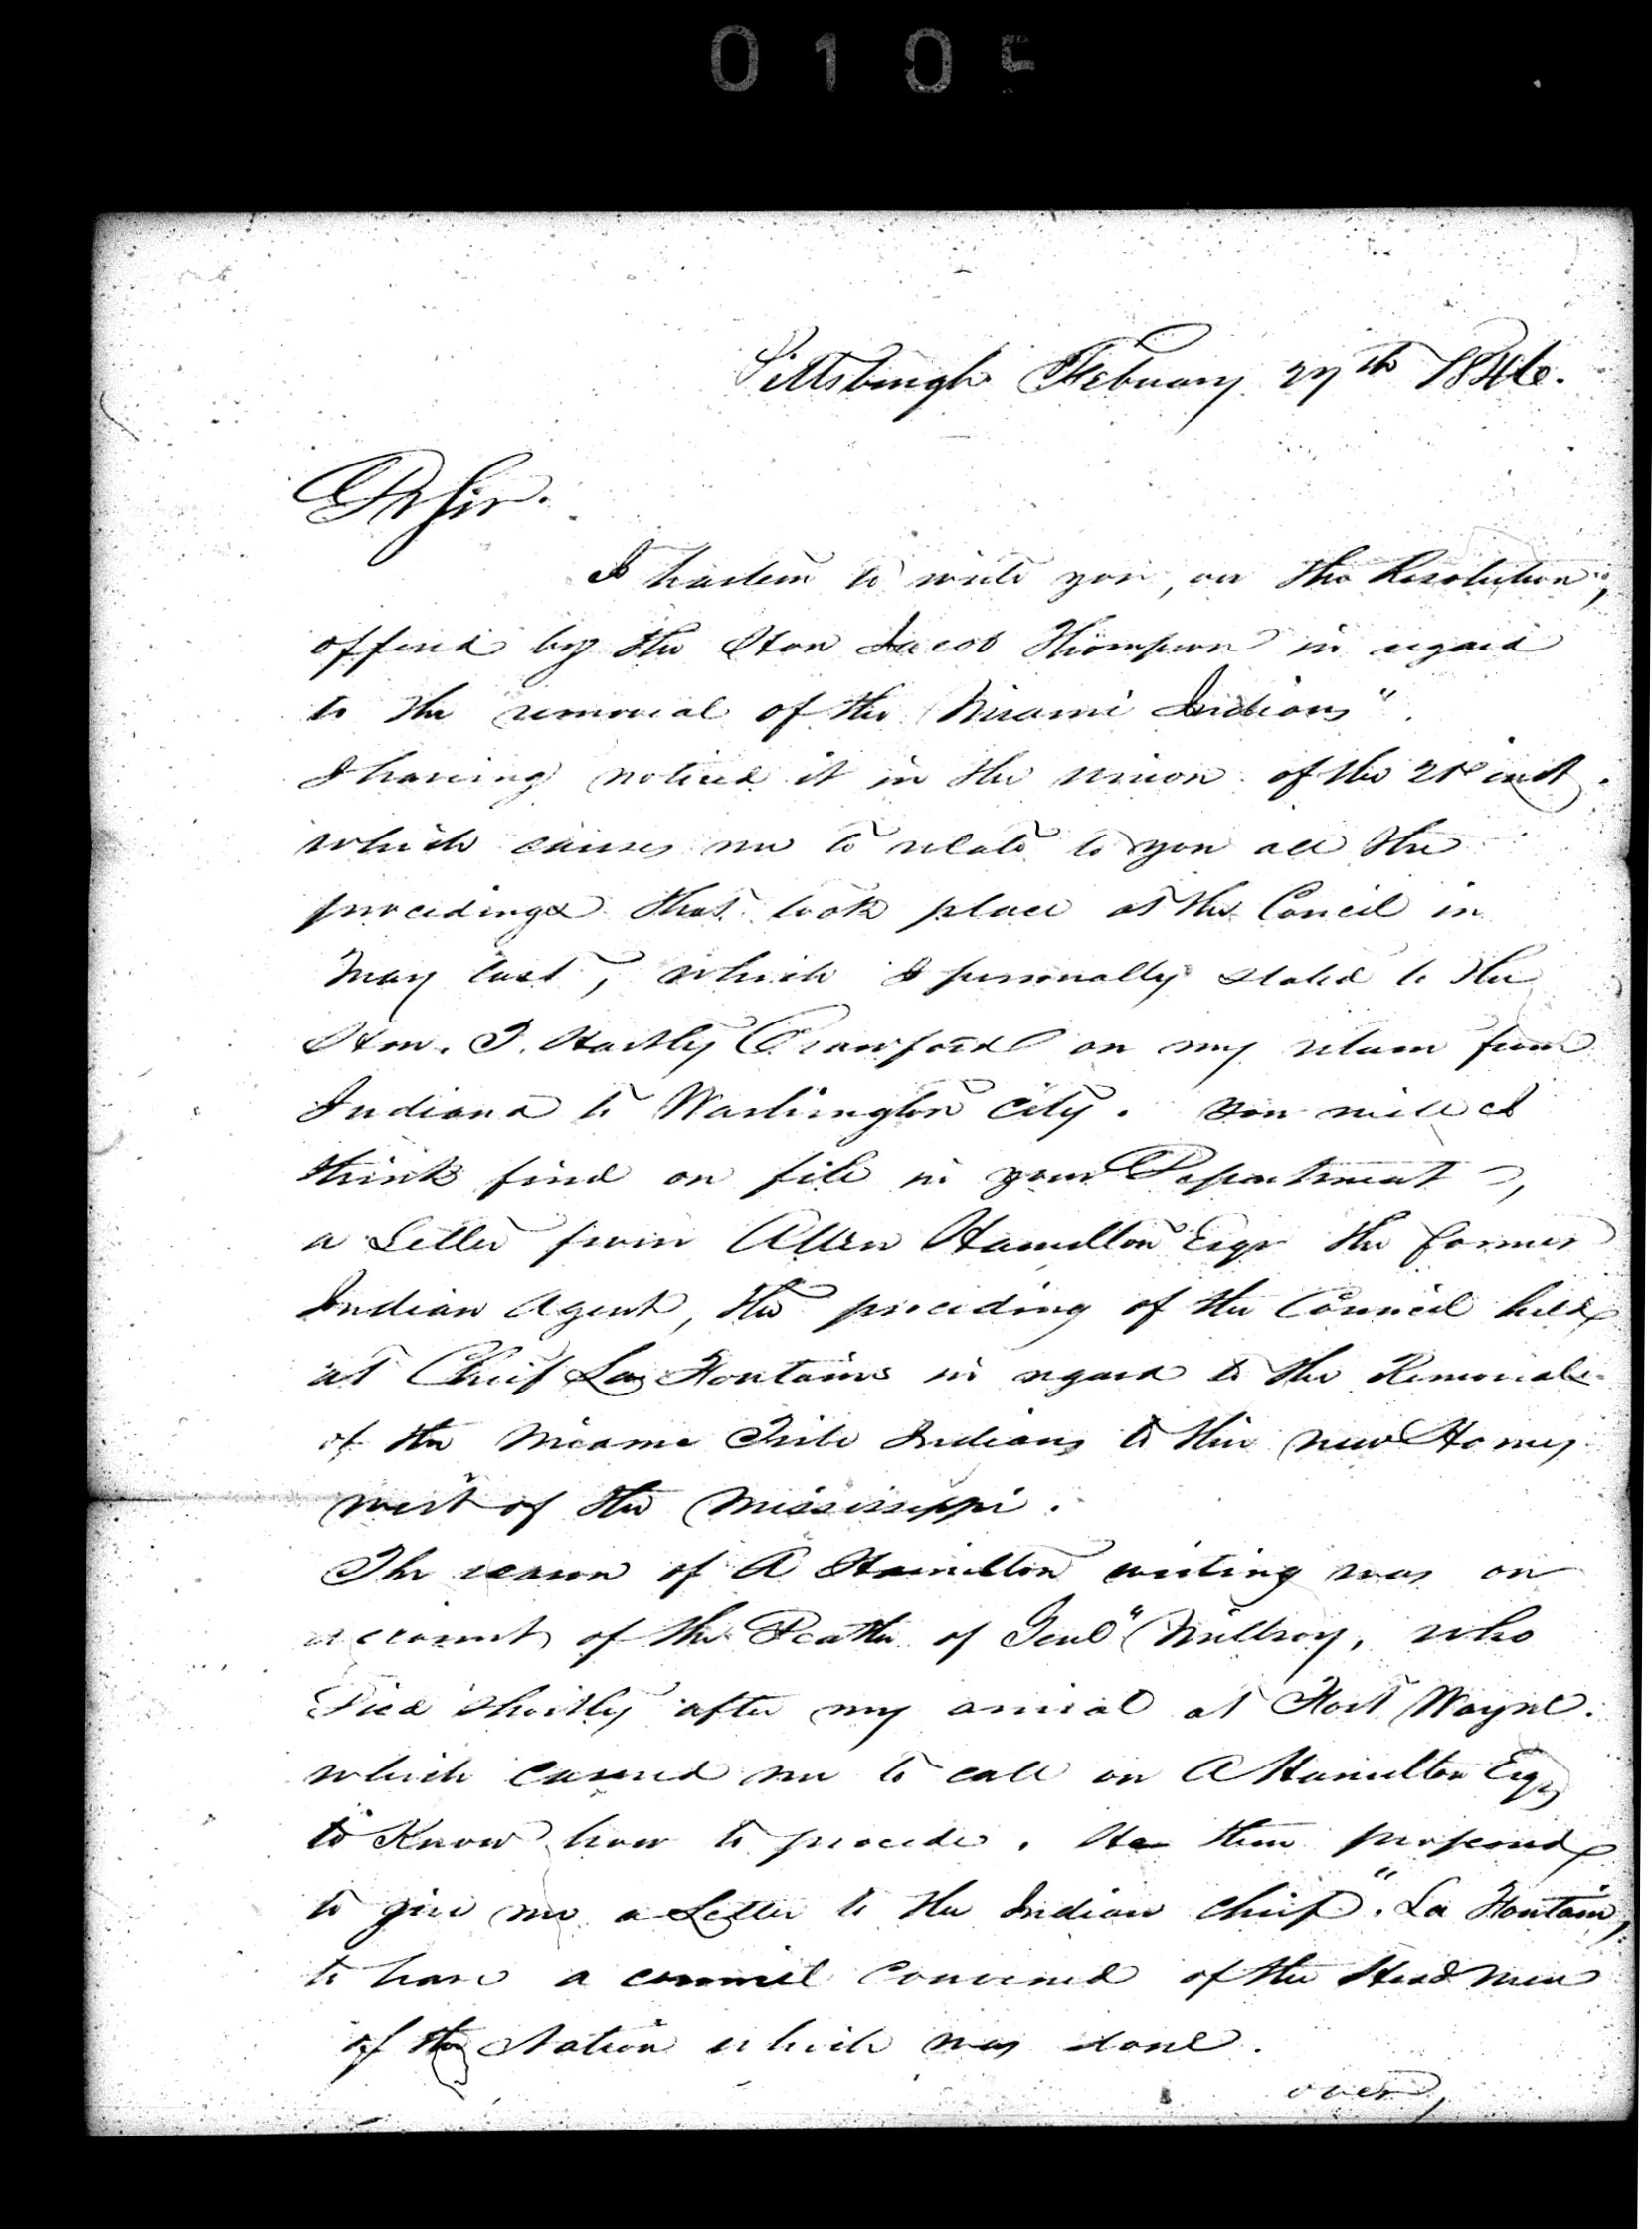 0105
Pittsburgh February 27th 1846.
Dr Sir.
I hasten to write you, on the Resolution,
offered by the Hon Jacob Thompson in regard
to the removal of the Miami Indians".
I having noticed it in the Union of the 21st inst.
which causes me to relate to you all the
procedings that took place at the Concil in
May last, which I personally stated to the
Hon. T. Hartley Crawford on my return from
Indiana to Washington City. You will I
think find on file in your Department,
a Letter from Allen Hamilton Esqr the former
Indian Agent, the preceding of the Council held
at Chief La Fontains in regard to the Removal
of the Miami Tribe Indians to thier new Homes
west of the Mississippi.
The reason of A Hamilton writing was on
account of the Death of Genl" Millroy, who
Died shortly after my arrival at Fort Wayne.
which caused me to call on A Hamilton Esqr
to Know how to procede. He then proposed
to give me a Letter to the Indian chief". La Fontain,
to have a council convened of the Head Men
of the Nation which was done.
over,